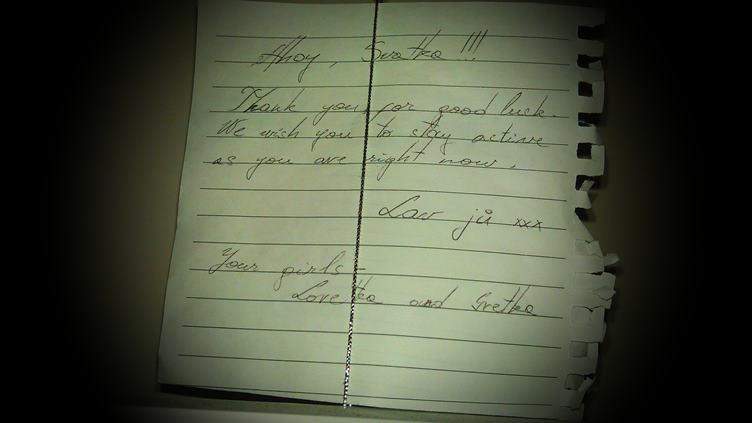 Ahoy, Svatka!!!
Thank you for good luck.
We wish you to stay active
as you are right now.
Lav jů xxx
Your girls -
Lovetka and Gretka